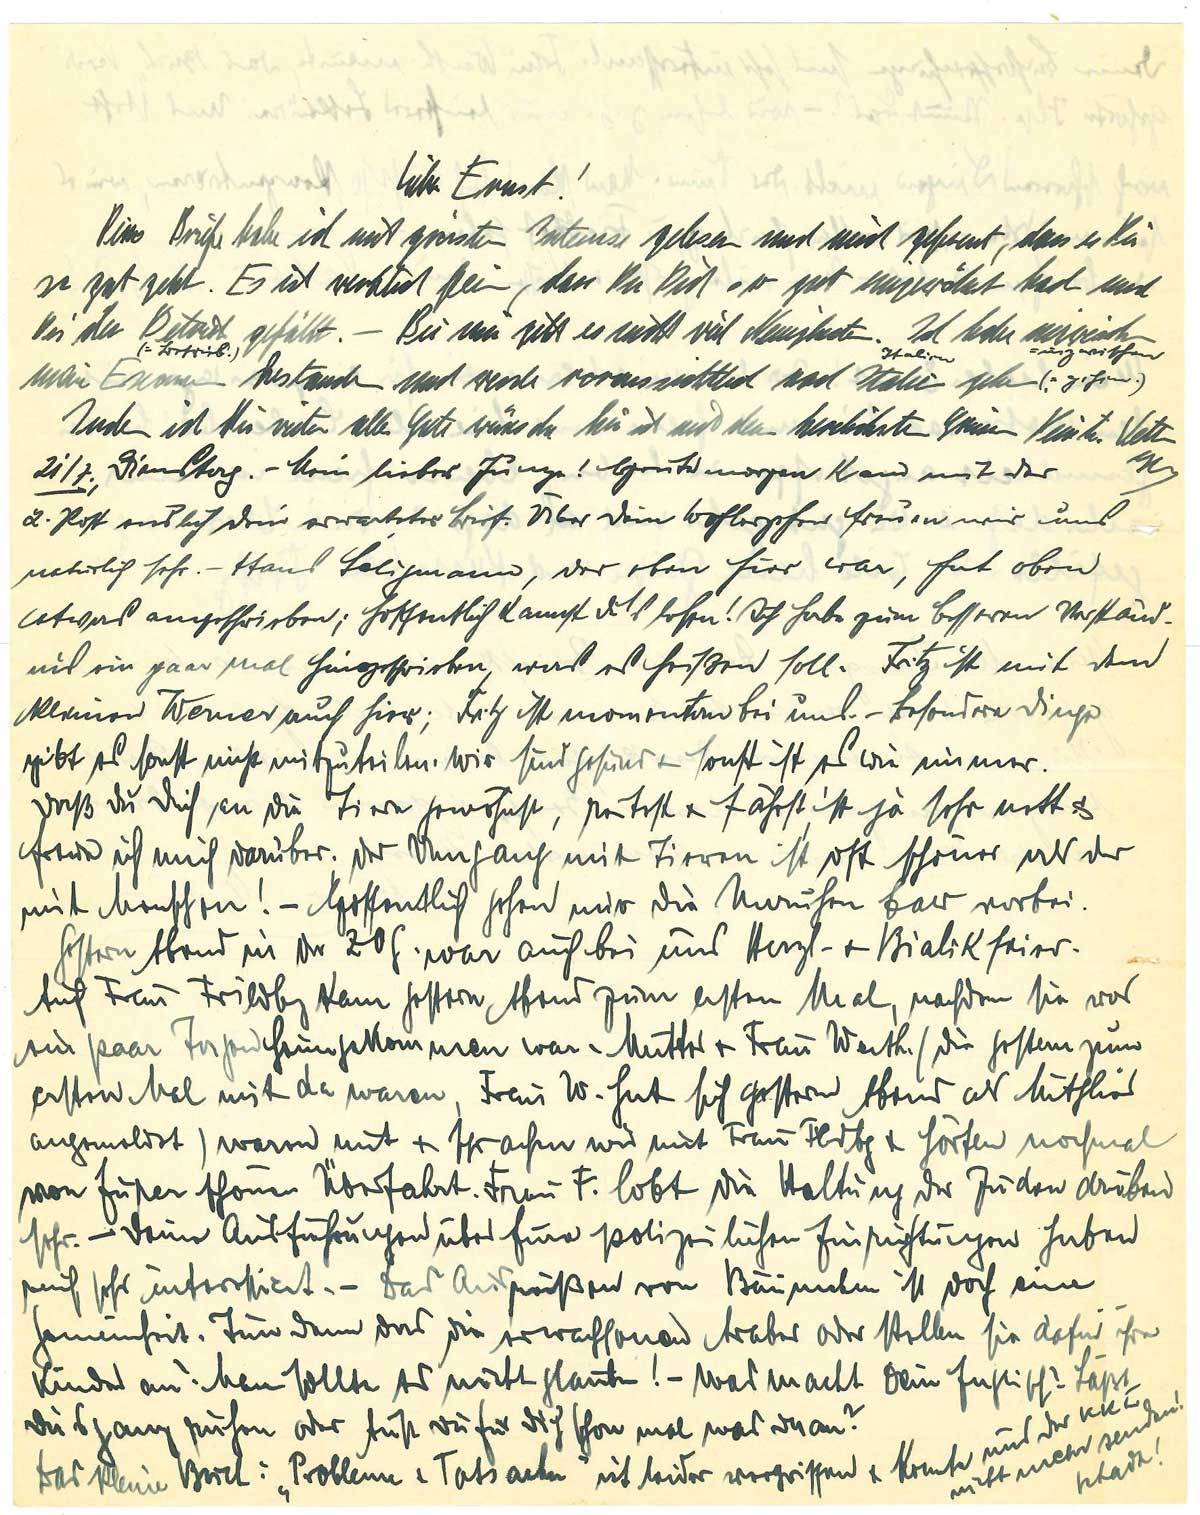 Lieber Ernst!
Deine Briefe habe ich mit grösstem Interesse gelesen und mich gefreut, dass es Dir
so gut geht. Es ist wirklich fein, dass Du Dich so gut eingewöhnt hast und
Dir der Betrieb gefällt. — Bei mir gibt es nicht viel Neuigkeiten. Ich habe inzwischen
(= Betrieb.) Italien = inzwischen
mein Examen bestanden und werde voraussichtlich nach Italien gehen (= gehen.)
Indem ich Dir weiter alles Gute wünsche bin ich mit den herzlichsten Grüssen Dein Vetter
21/7., Dienstag. – Mein lieber Junge! Heute morgen kam mit der
2. Post endlich dein erwarteter Brief. Über dein Wohlergehen freuen wir uns
natürlich sehr. – Hans Seligmann, der eben hier war, hat oben
etwas angeschrieben; hoffentlich kannst du's lesen! Ich habe zum besseren Verständ-
nis ein paar mal hingeschrieben, was es heißen soll. Fritz ist mit dem
kleinen Werner auch hier; Fritz ist momentan bei uns. – Besondere Dinge
gibt es sonst nicht mitzuteilen. Wir sind gesund & sonst ist es wie immer.
Daß du dich an die Tiere gewöhnst, reitest & fährst, ist ja sehr nett &
freue ich mich darüber. Der Umgang mit Tieren ist oft schöner als der
mit Menschen! – Hoffentlich gehen nur die Unruhen bald vorbei.
Gestern Abend in der ZOG. war auch bei uns Herzl- & Bialikfeier.
Auch Frau Frildbg kam gestern Abend zum ersten Mal, nachdem sie vor
ein paar Tagen heimgekommen war. Mutter & Frau Werth. (die gestern zum
ersten Mal mit da waren, Frau W. hat sich gestern Abend als Mitglied
angemeldet) waren mit & sprachen wir mit Frau Fldbg & hörten nochmal
von Eurer schönen Überfahrt. Frau F. lobt die Haltung der Juden drüben
sehr. – Deine Ausführungen über Eure polizeilichen Einrichtungen haben
mich sehr interessiert. – Das Ausreißen von Bäumchen ist doch eine
Gemeinheit. Tun denn das die erwachsenen Araber oder stellen sie dafür ihre
Kinder an. Man sollte es nicht glauben! – Was macht Dein Englisch? Läßt
Du's ganz ruhen oder tust du für dich schon mal was dran?
Das kleine Buch: „Probleme & Tatsachen" ist leider vergriffen & konnte uns der KKL
nicht mehr senden!
schade!